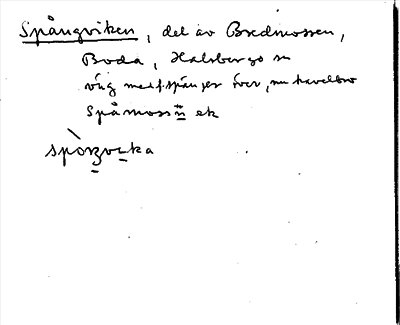 Spångviken, del av Bredmossen,
Boda, Halsbergs sn
väg med f. spänger över, nu kavelbro
Spåmossn ek